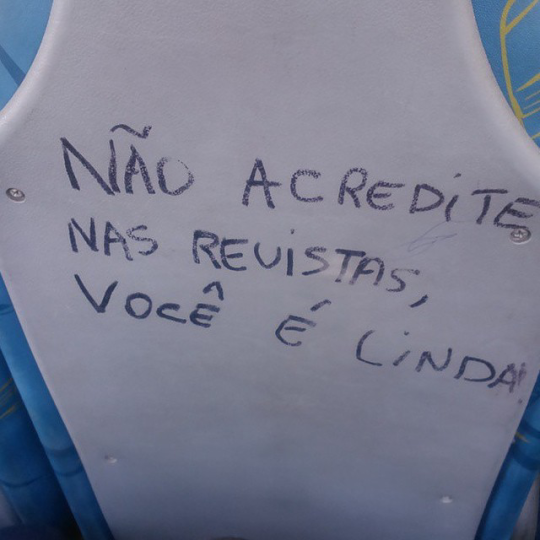 NÃO ACREDiTE
NAS REViSTAS,
VOCÊ É LiNDA!